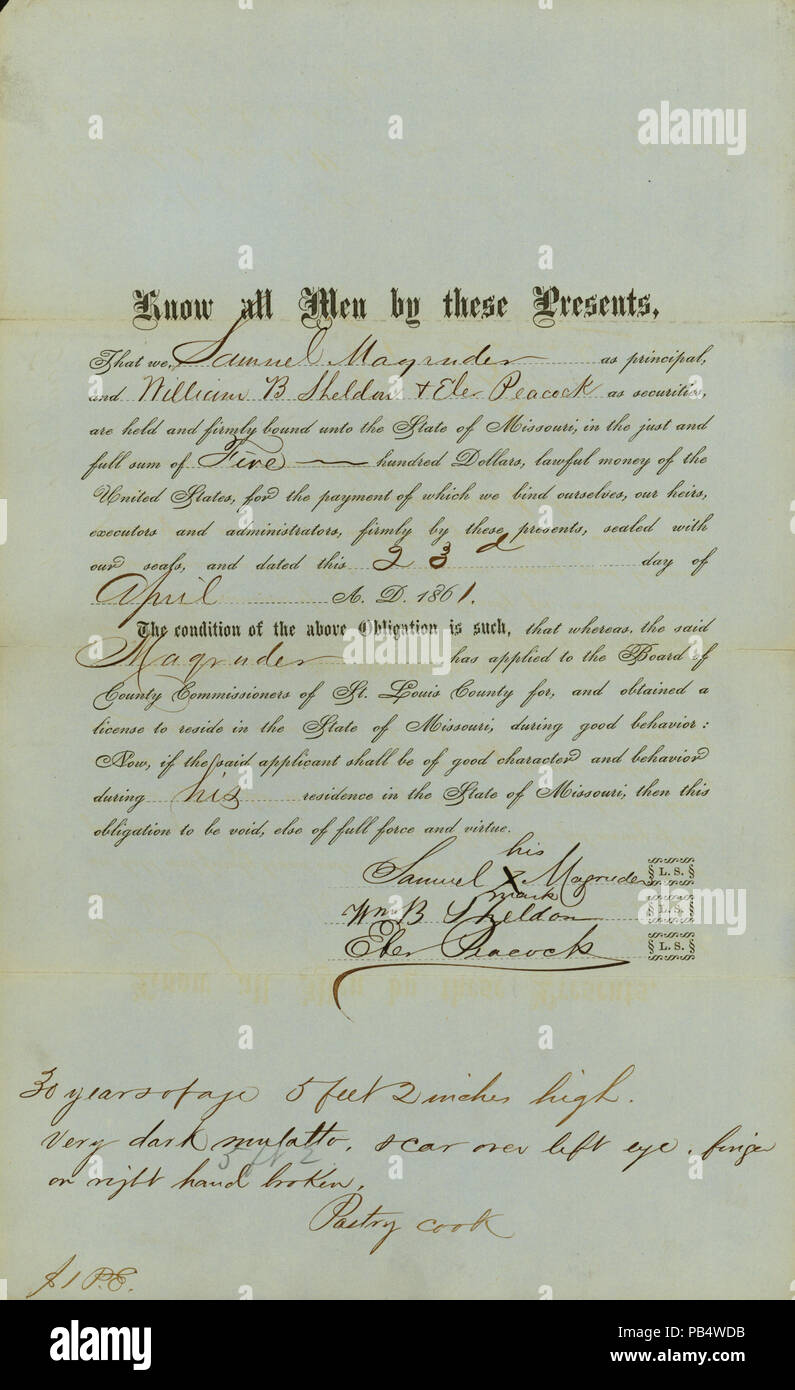 Know all Men by these Presents,
That we, Samuel Magruder as principal,
and William B Sheldon & Eber Peacock as securities,
are held and firmly bound unto the State of Missouri, in the just and
full sum of Five hundred Dollars, lawful money of the
United States, for the payment of which we bind ourselves, our heirs,
executors and administrators, firmly by these presents, sealed with
our seals, and dated this 23d day of
April A. D. 1861.
The condition of the above Obligation is such, that whereas, the said
Magruder has applied to the Board of
County Commissioners of St. Louis County for, and obtained a
license to reside in the State of Missouri, during good behavior:
Now, if the said applicant shall be of good character and behavior
during his residence in the State of Missouri, then this
obligation to be void, else of full force and virtue.
his
Samuel X Magruder L. S.
mark
Wm B Sheldon L. S.
Eber Peacock L. S.
30 years of age 5 feet 2 inches high.
Very dark mulatto, scar over left eye, finger
5 ft 2
on right hand broken.
Pastry cook
P.E.
alamy
alamy
Image ID: PB4WDB
www.alamy.com